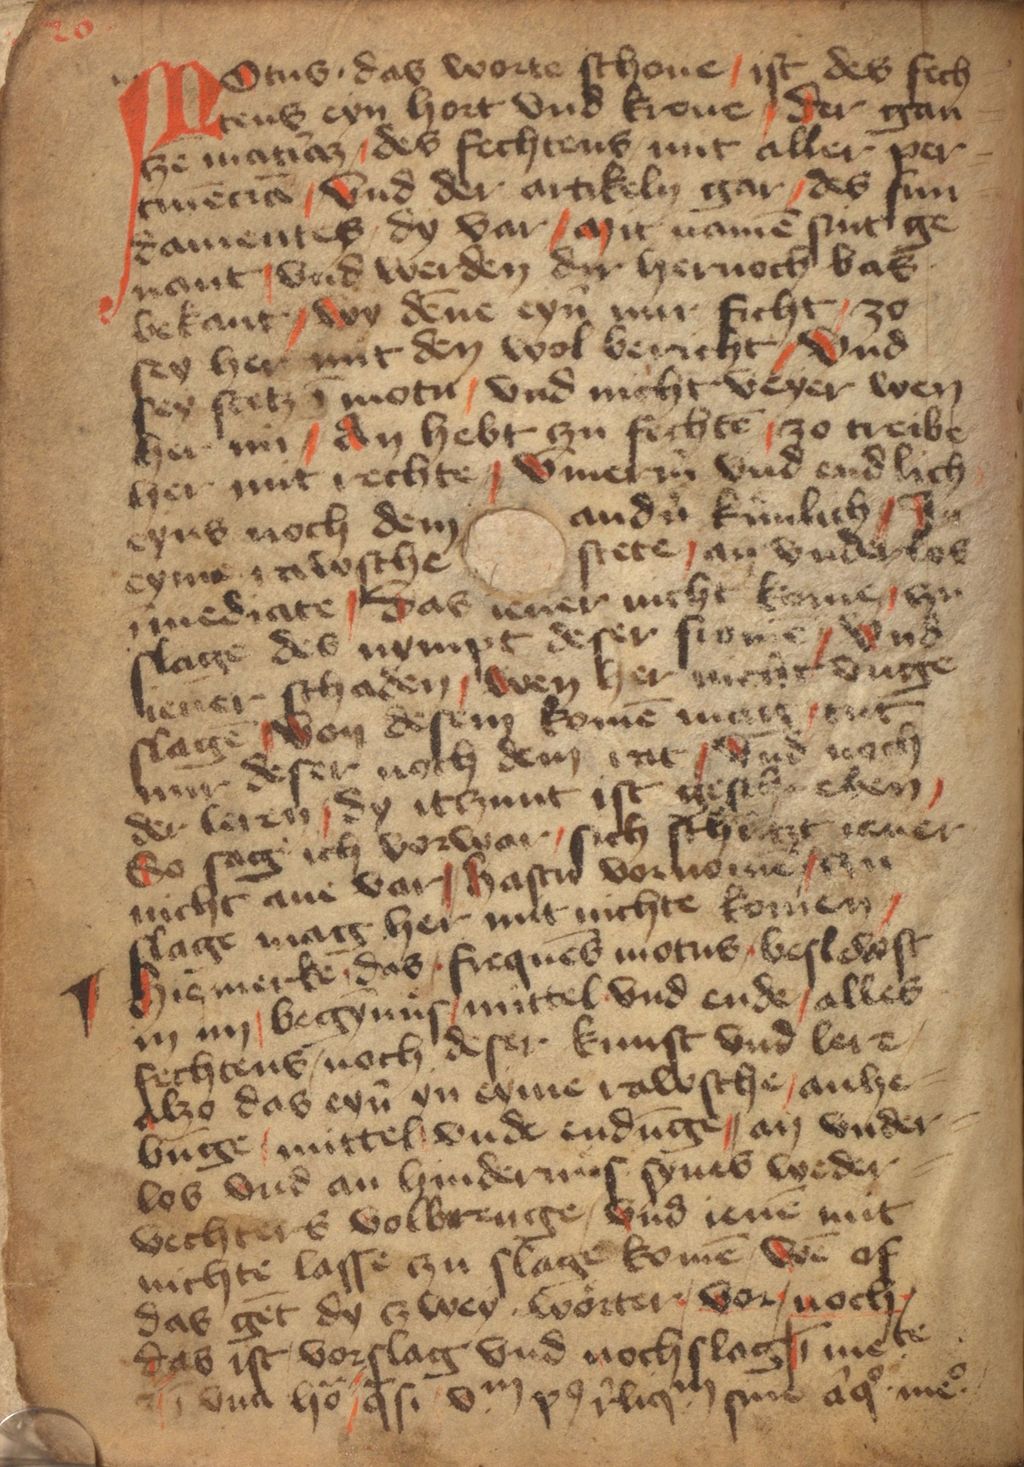 20
MOtus das worte schone / ist des fech
tens eyn hort vnd krone / der gan
cze materiaz / des fechtens / mit aller per
tinēcia / Vnd der artikeln gar / des fun
damentes / dy var / Mit namē sint ge
nant / vnd werden dir hernoch bas
bekant / wy dēne eyn̄ nur ficht / zo
sey her mit den wol bericht / Vnd
sey stetz ī motu / vnd nicht veyer wen
her nu / An hebt czu fechtē / zo treibe
her mit rechte / v̄mermē vnd endlich
eyns noch dem andn̄ künlich / In
eyme rawsche stete / an vnderlos
īmediate / Das iener nicht kome / czu
slage des nympt deser frome / Vnd
iener schaden / wen her nicht vnge
slagē / Von desem komē mag / tut
nur deser noch dem rat / Vnd noch
der leren / dy itzunt ist geschreben /
So sag ich vorwar / sich schützt iener
nicht ane var / Hastu vornomē / czu
slage mag her mit nichte komen /
Hie merke / das / frequēs motus / beslewst
in im / begynnüs / mittel vnd ende / alles
fechtens / noch deser kunst vnd lere
Alzo das eyn̄ yn eyme rawsche / anhe
būnge / mittel vnde endūnge / an vnder
los vnd an hindernis synes weder
vechters volbrenge / vnd ienē mit
nichte lasse czu slage komē / Wē of
das gēt dy czwey wörter / vor / noch /
das ist vorslag vnd nochslag / ī mete
vna hō / q̄si vm p9 r̄liqm sine āqo meo